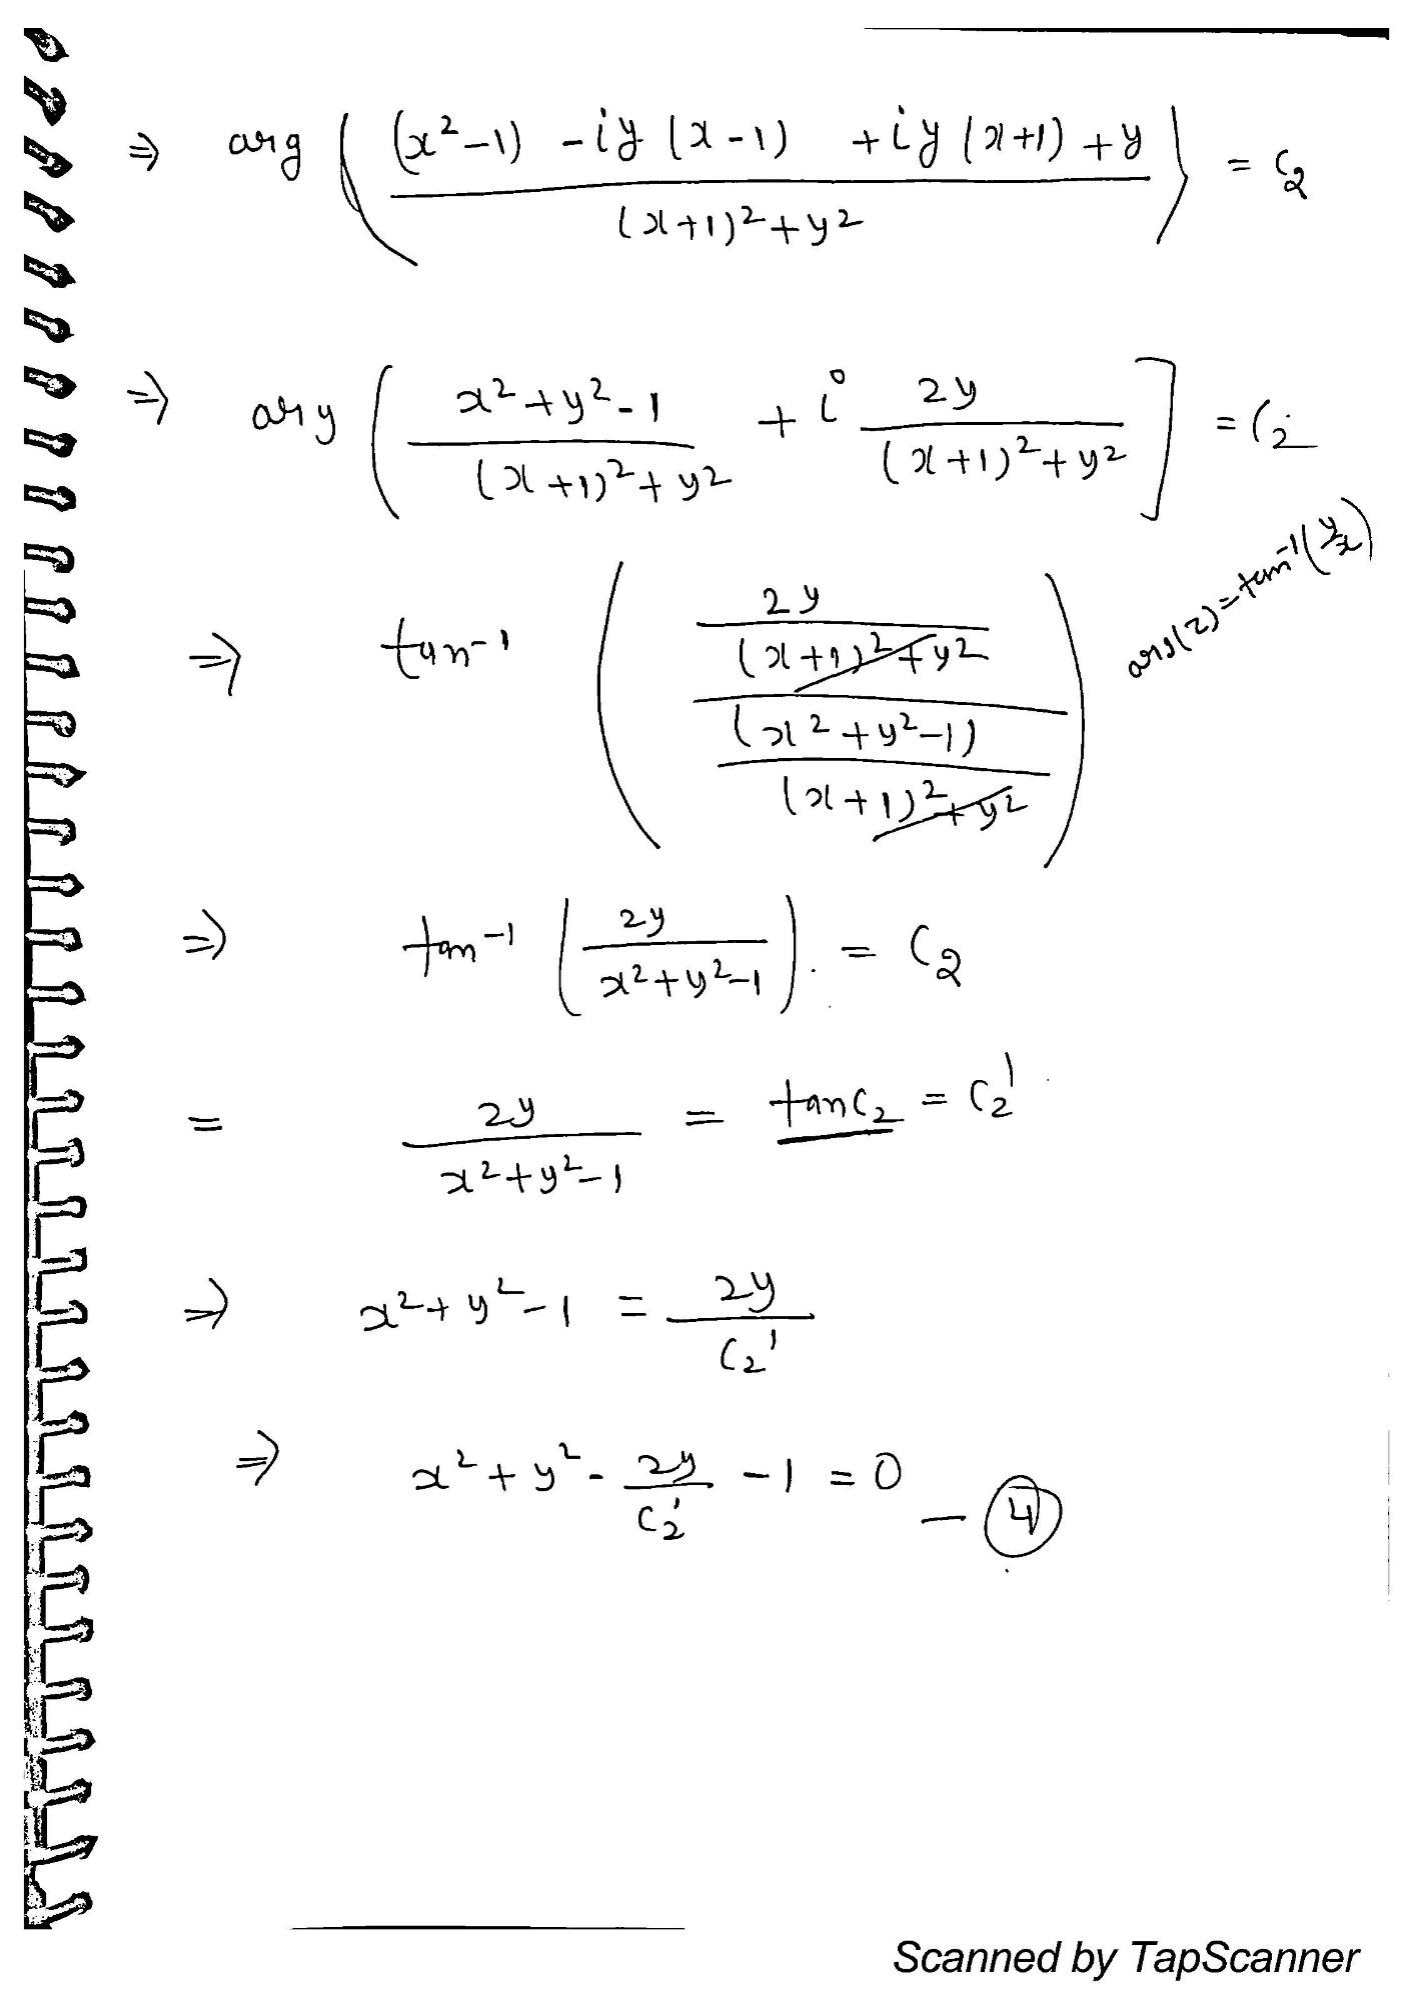 ⇒ arg ( ((x²-1) - iy (x-1) + iy (x+1) + y) / ((x+1)² + y²) ) = C₂
⇒ arg [ (x²+y²-1) / ((x+1)²+y²) + i 2y / ((x+1)²+y²) ] = C₂
arg(z) = tan⁻¹(y/x)
⇒ tan⁻¹ ( (2y / ((x+1)²+y²)) / ((x²+y²-1) / ((x+1)²+y²)) )
⇒ tan⁻¹ ( 2y / (x²+y²-1) ). = C₂
= 2y / (x²+y²-1) = tanC₂ = C₂'
⇒ x²+y²-1 = 2y / C₂'
⇒ x²+y² - 2y/C₂' -1 = 0 - ④
Scanned by TapScanner